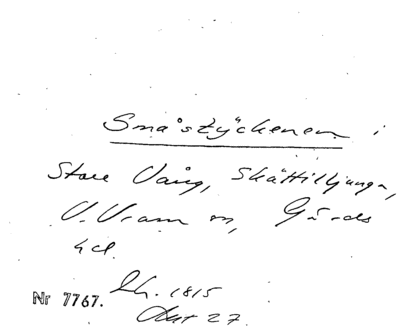 Småstyckenen i
Store Vång, Skättilljunga,
V. Vram sn, Gärds
hd.
Nr 7767. Lh. 1815
Akt 27.